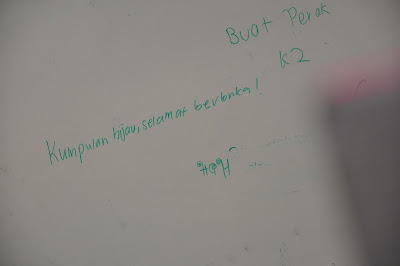 Buat Perak
K2
Kumpulan hijau, selamat berbuka!